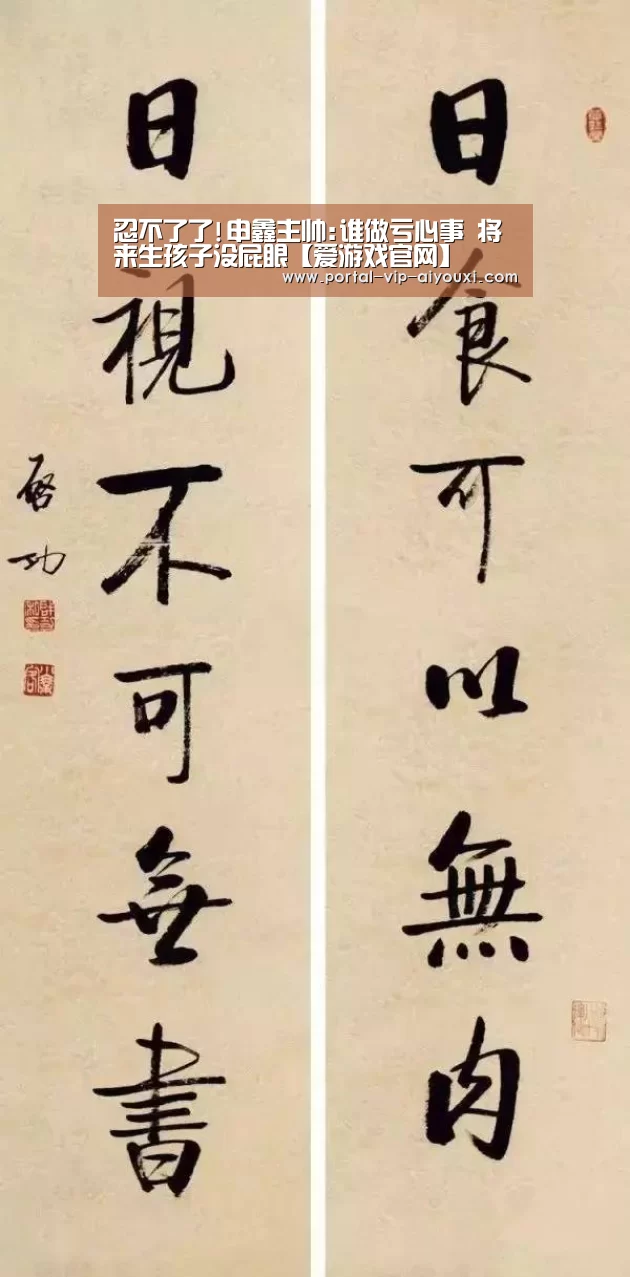 日食可以無肉
日視不可無書
啓功
忍不了了!申鑫主帅:谁做亏心事 将
来生孩子没屁眼【爱游戏官网】
www.portal-vip-aiyouxi.com